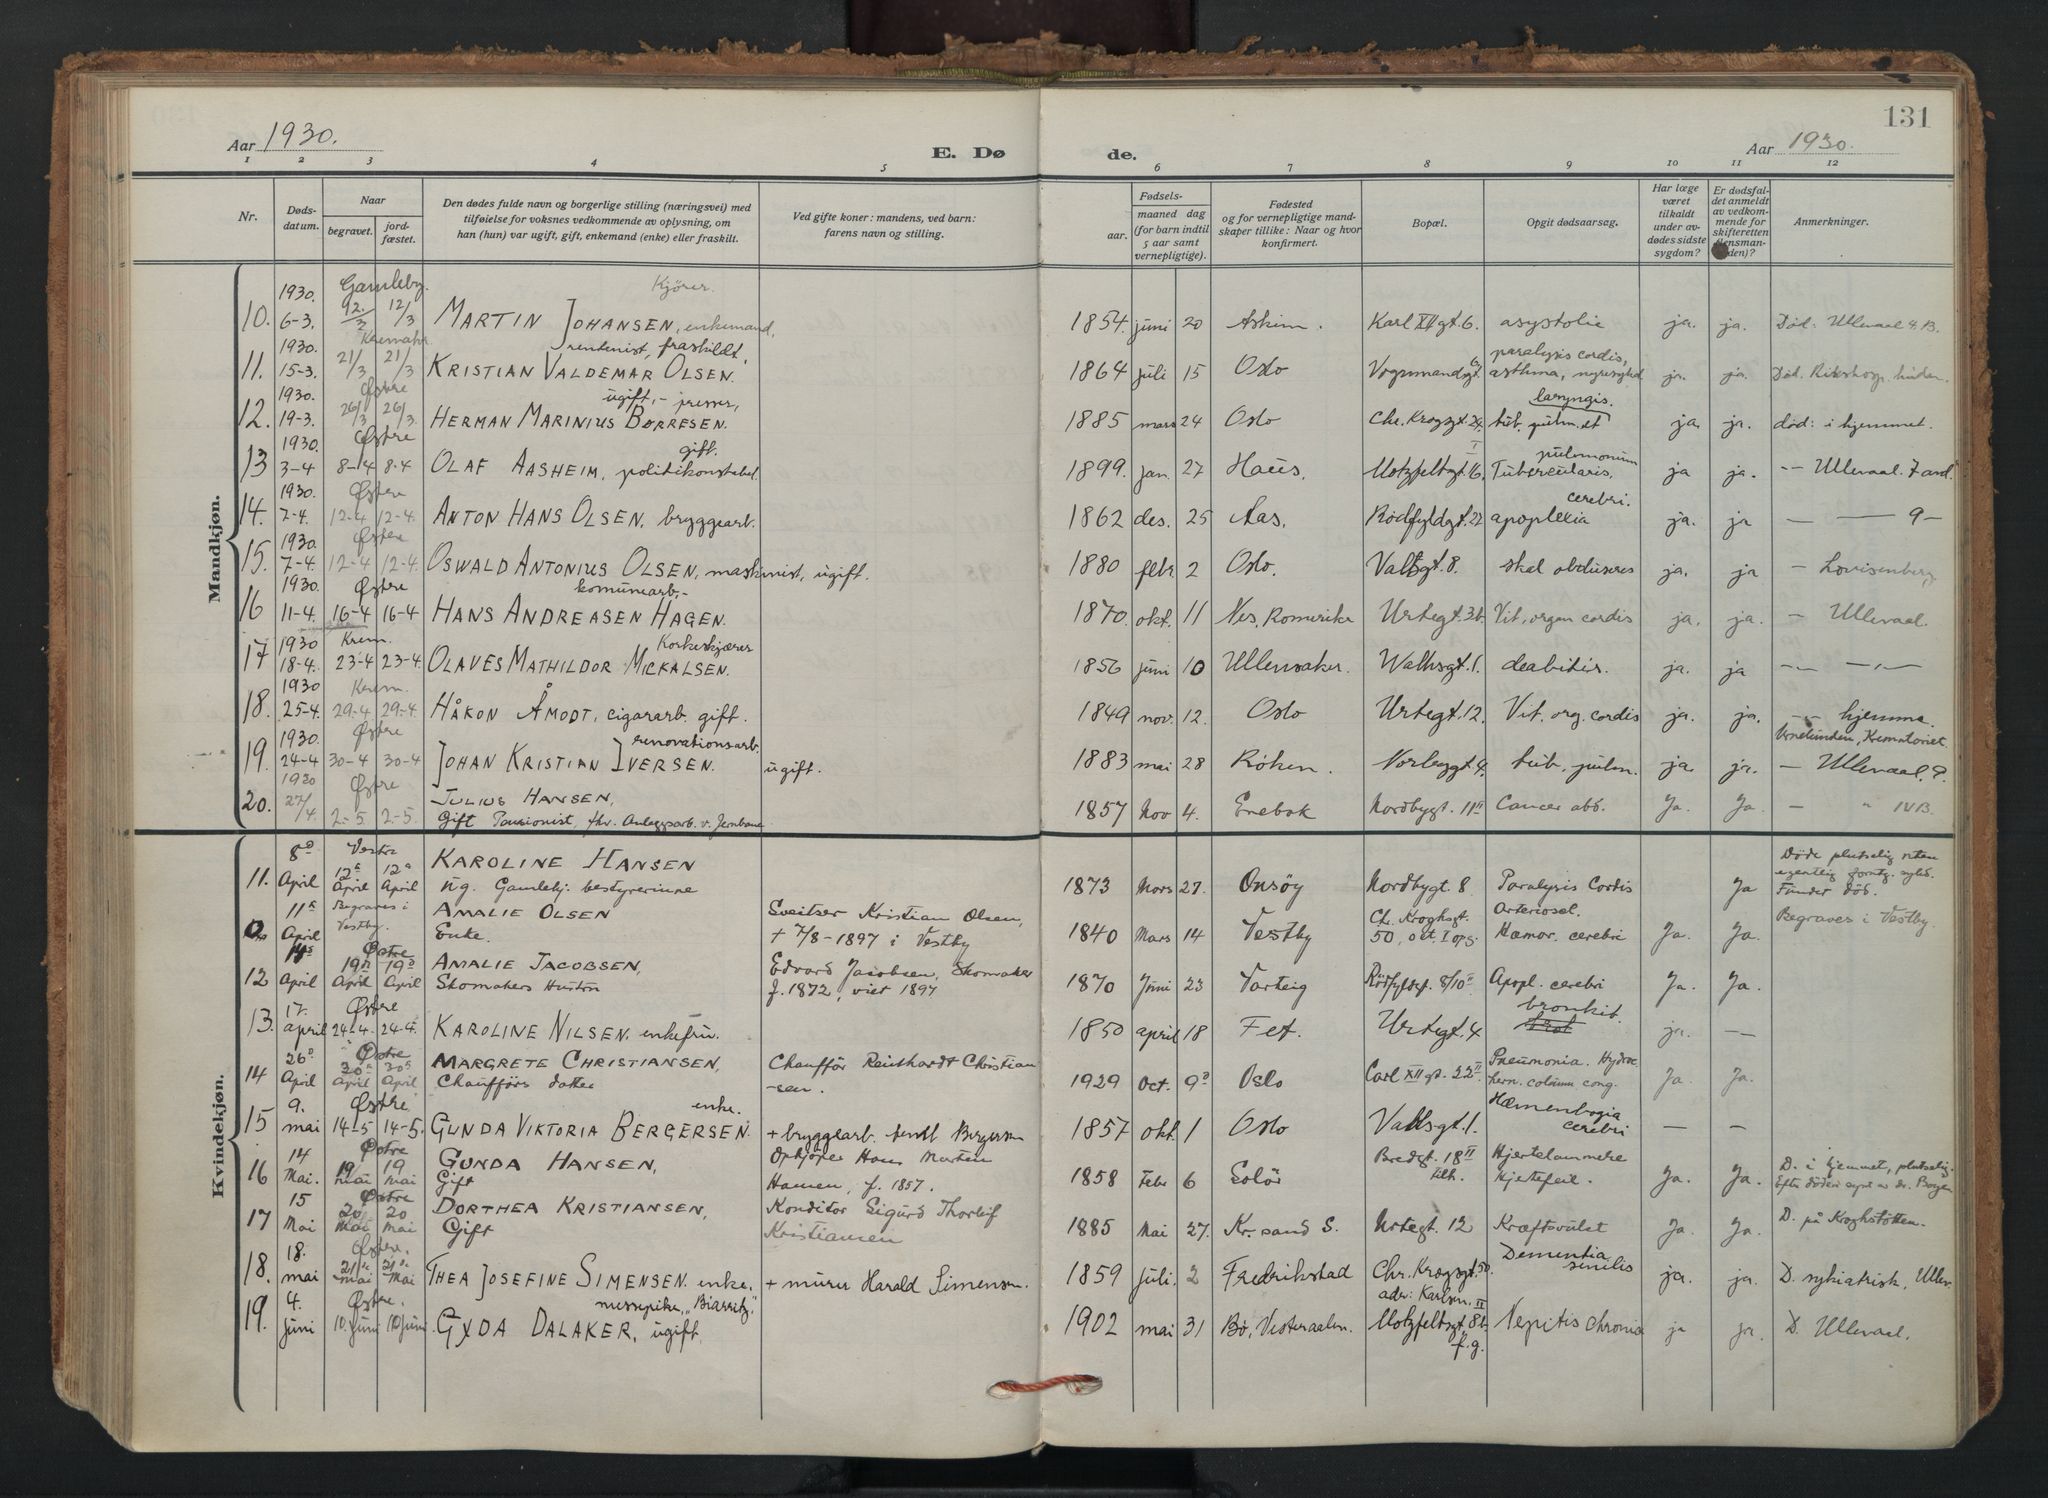 131
Aar 1930.
E. Døde.
Aar 1930.
1 2 3 4 5 6 7 8 9 10 11 12
Nr.
Dødsdatum.
Naar
begravet.
jordfæstet.
Den dødes fulde navn og borgerlige stilling (næringsvei) med
tilføielse for voksnes vedkommende av oplysning, om
han (hun) var ugift, gift, enkemand (enke) eller fraskilt.
Ved gifte koner: mandens, ved barn:
farens navn og stilling.
Fødsels-
aar.
maaned dag
(for barn indtil
5 aar samt
vernepligtige).
Fødested
og for vernepligtige mandskaper tillike: Naar og hvor
konfirmert.
Bopæl.
Opgit dødsaarsag.
Har læge
været
tilkaldt
under avdødes sidste
sygdom?
Er dødsfaldet anmeldt
av vedkommende for
skifteretten
(lensmanden)?
Anmerkninger.
Mandkjøn.
10. 1930. 6-3. Gamleby. 12/3 MARTIN JOHANSEN, enkemand, Kjører. 1854. juni 20 Askim. Karl XII gt. 6. asystolie ja. ja. Død: Ullevaal 4. B.
11. 1930. 15-3. 21/3 21/3 rentenist, fraskildt, KRISTIAN VALDEMAR OLSEN. 1864 juli 15 Oslo Vognmandsgt. 6 paralysis cordis, asthma, nyresykd ja. ja. Død. Rikshosp.
12. 1930. 19-3. Østre 26/3 26/3 ugift, - presser, HERMAN MARINIUS BØRRESEN. 1885 mars 24 Oslo Chr. Krogsgt. 24. tub. pulm. et laryngis. ja. ja. død: i hjemmet.
13 1930. 3-4 Østre 8-4 8-4 OLAF AASHEIM, politikonstabel gift. 1899. jan. 27 Haus. Motzfeldtsgt. 16. I Tubercularis, pulmonum ja ja. -- Ullevaal. 7 avd.
14. 1930. 7-4. Østre 12-4 12-4. ANTON HANS OLSEN, bryggearb. 1862 des. 25 Aas. Rødfyldgt. 22 apoplexia cerebri. ja. ja — — 9-
15. 1930 7-4. Østre 12-4 12-4. OSWALD ANTONIUS OLSEN, maskinist, ugift. 1880 febr 2 Oslo. Valhsgt. 8. skal obduseres ja. ja - Lovisenberg
16 1930 11-4. Østre 16-4 16-4. komunearb.- HANS ANDREASEN HAGEN. 1870. okt. 11 Nes, Romerike Urtegt. 36. Vit. organ cordis ja. ja. - Ullevaal.
17 1930 18-4. Krem. 23-4 23-4. Korkeskjærer OLAVES MATHILDOR MICKALSEN. 1856 juni 10 Ullensaker. Wallhsgt. 1. deabitis. ja. ja -"- -"-
18. 1930 25-4. Krem. 29-4 29-4. HÅKON ÅMODT, cigararb. gift. 1849 nov. 12. Oslo Urtegt. 12. Vit. org. cordis ja. ja. -- hjemme.
19. 1930. 24-4 Østre 30-4 30-4 renovationsarb. JOHAN KRISTIAN IVERSEN. ugift. 1883 mai 28 Røken. Norbygt. 4. tub. pulm. ja. ja. - Ullevaal. 9.
20. 1930 27/4 Østre 2-5 2-5. JULIUS HANSEN,
Gift Pensionist, fhv. Anleggsarb. v. Jernbane 1857 Nov 4. Enebak Nordbygt. 11 II Cancer abd. Ja. Ja. - " IVB.
Kvindekjøn.
11. 8de April Vestre 12te April 12te April KAROLINE HANSEN
ug. Gamlehj. bestyrerinne 1873 Mars 27. Onsøy Nordbygt. 8 Paralysis Cordis Ja Døde plutselig uten
egentlig forutg. sykd.
Funnet død.
11te April Begraves i Vestby. AMALIE OLSEN
Enke. Sveitser Kristian Olsen,
+ 7/8-1897 i Vestby 1840 Mars 14 Vestby Ch. Kroghsgt.
50, I opg. Arteriosel.
Hæmor. cerebri Ja. Ja. Begraves i Vestby
12 April Østre 19de April 19de April AMALIE JACOBSEN,
Skomakers Hustru Edvard Jacobsen, Skomaker
f. 1872, viet 1897 1870 Juni 23 Varteig Rødfyldgt. 8/10 II Apopl. cerebri Ja. Ja.
13. 17. april Østre 24-4. 24-4. KAROLINE NILSEN, enkefru. 1850 april 18 Fet. Urtegt. 4 bronkit. ja. —
14 26de April Østre 30te April 30te April MARGRETE CHRISTIANSEN,
Chaufførs datter Chauffør Reinhardt Christian
-sen. 1929 Oct. 9de Oslo Carl XII gt. 22 II Pneumonia. cong. Ja. Ja.
15 9. mai Østre 14-5 14-5. GUNDA VIKTORIA BERGERSEN. enke. + bryggearb. Bergersen 1857 okt. 1 Oslo Vallhsgt. 1. cerebri — —
16 14 Mai. Østre 19 Mai 19 Mai GUNDA HANSEN,
Gift Opkjøper Hans Morten
Hansen, f. 1857. 1858 Febr 6 Solør Bredgt. 18 II Hjertelammelse
Hjertefeil. Ja. Ja. D. i hjemmet, plutselig.
17 15 Mai Østre 20 Mai 20 Mai DORTHEA KRISTIANSEN,
Gift Konditor Sigurd Thorleif
Kristiansen 1885 Mai 27. Kr. sand S. Urtegt. 12 Kræftsvulst Ja Ja. D. på Kroghstøtten.
18. 18. mai Østre. 21de Mai 21de Mai THEA JOSEFINE SIMENSEN. enke. + murer Harald Simensen. 1859 juli. 2 Fredrikstad Chr. Krogsgt. 50.
adr: Karlsen. II Dementia sinilis ja. ja. D. sykiatrisk, Ullev.
19. 4. juni Østre. 10. juni 10 juni. messepike, "Biarritz," GYDA DALAKER, ugift. 1902 mai 31 Bø, Vesteraalen. Motzfeldtsgt 8b.
f. g. Nepitis chronia ja ja. D. Ullevaal.